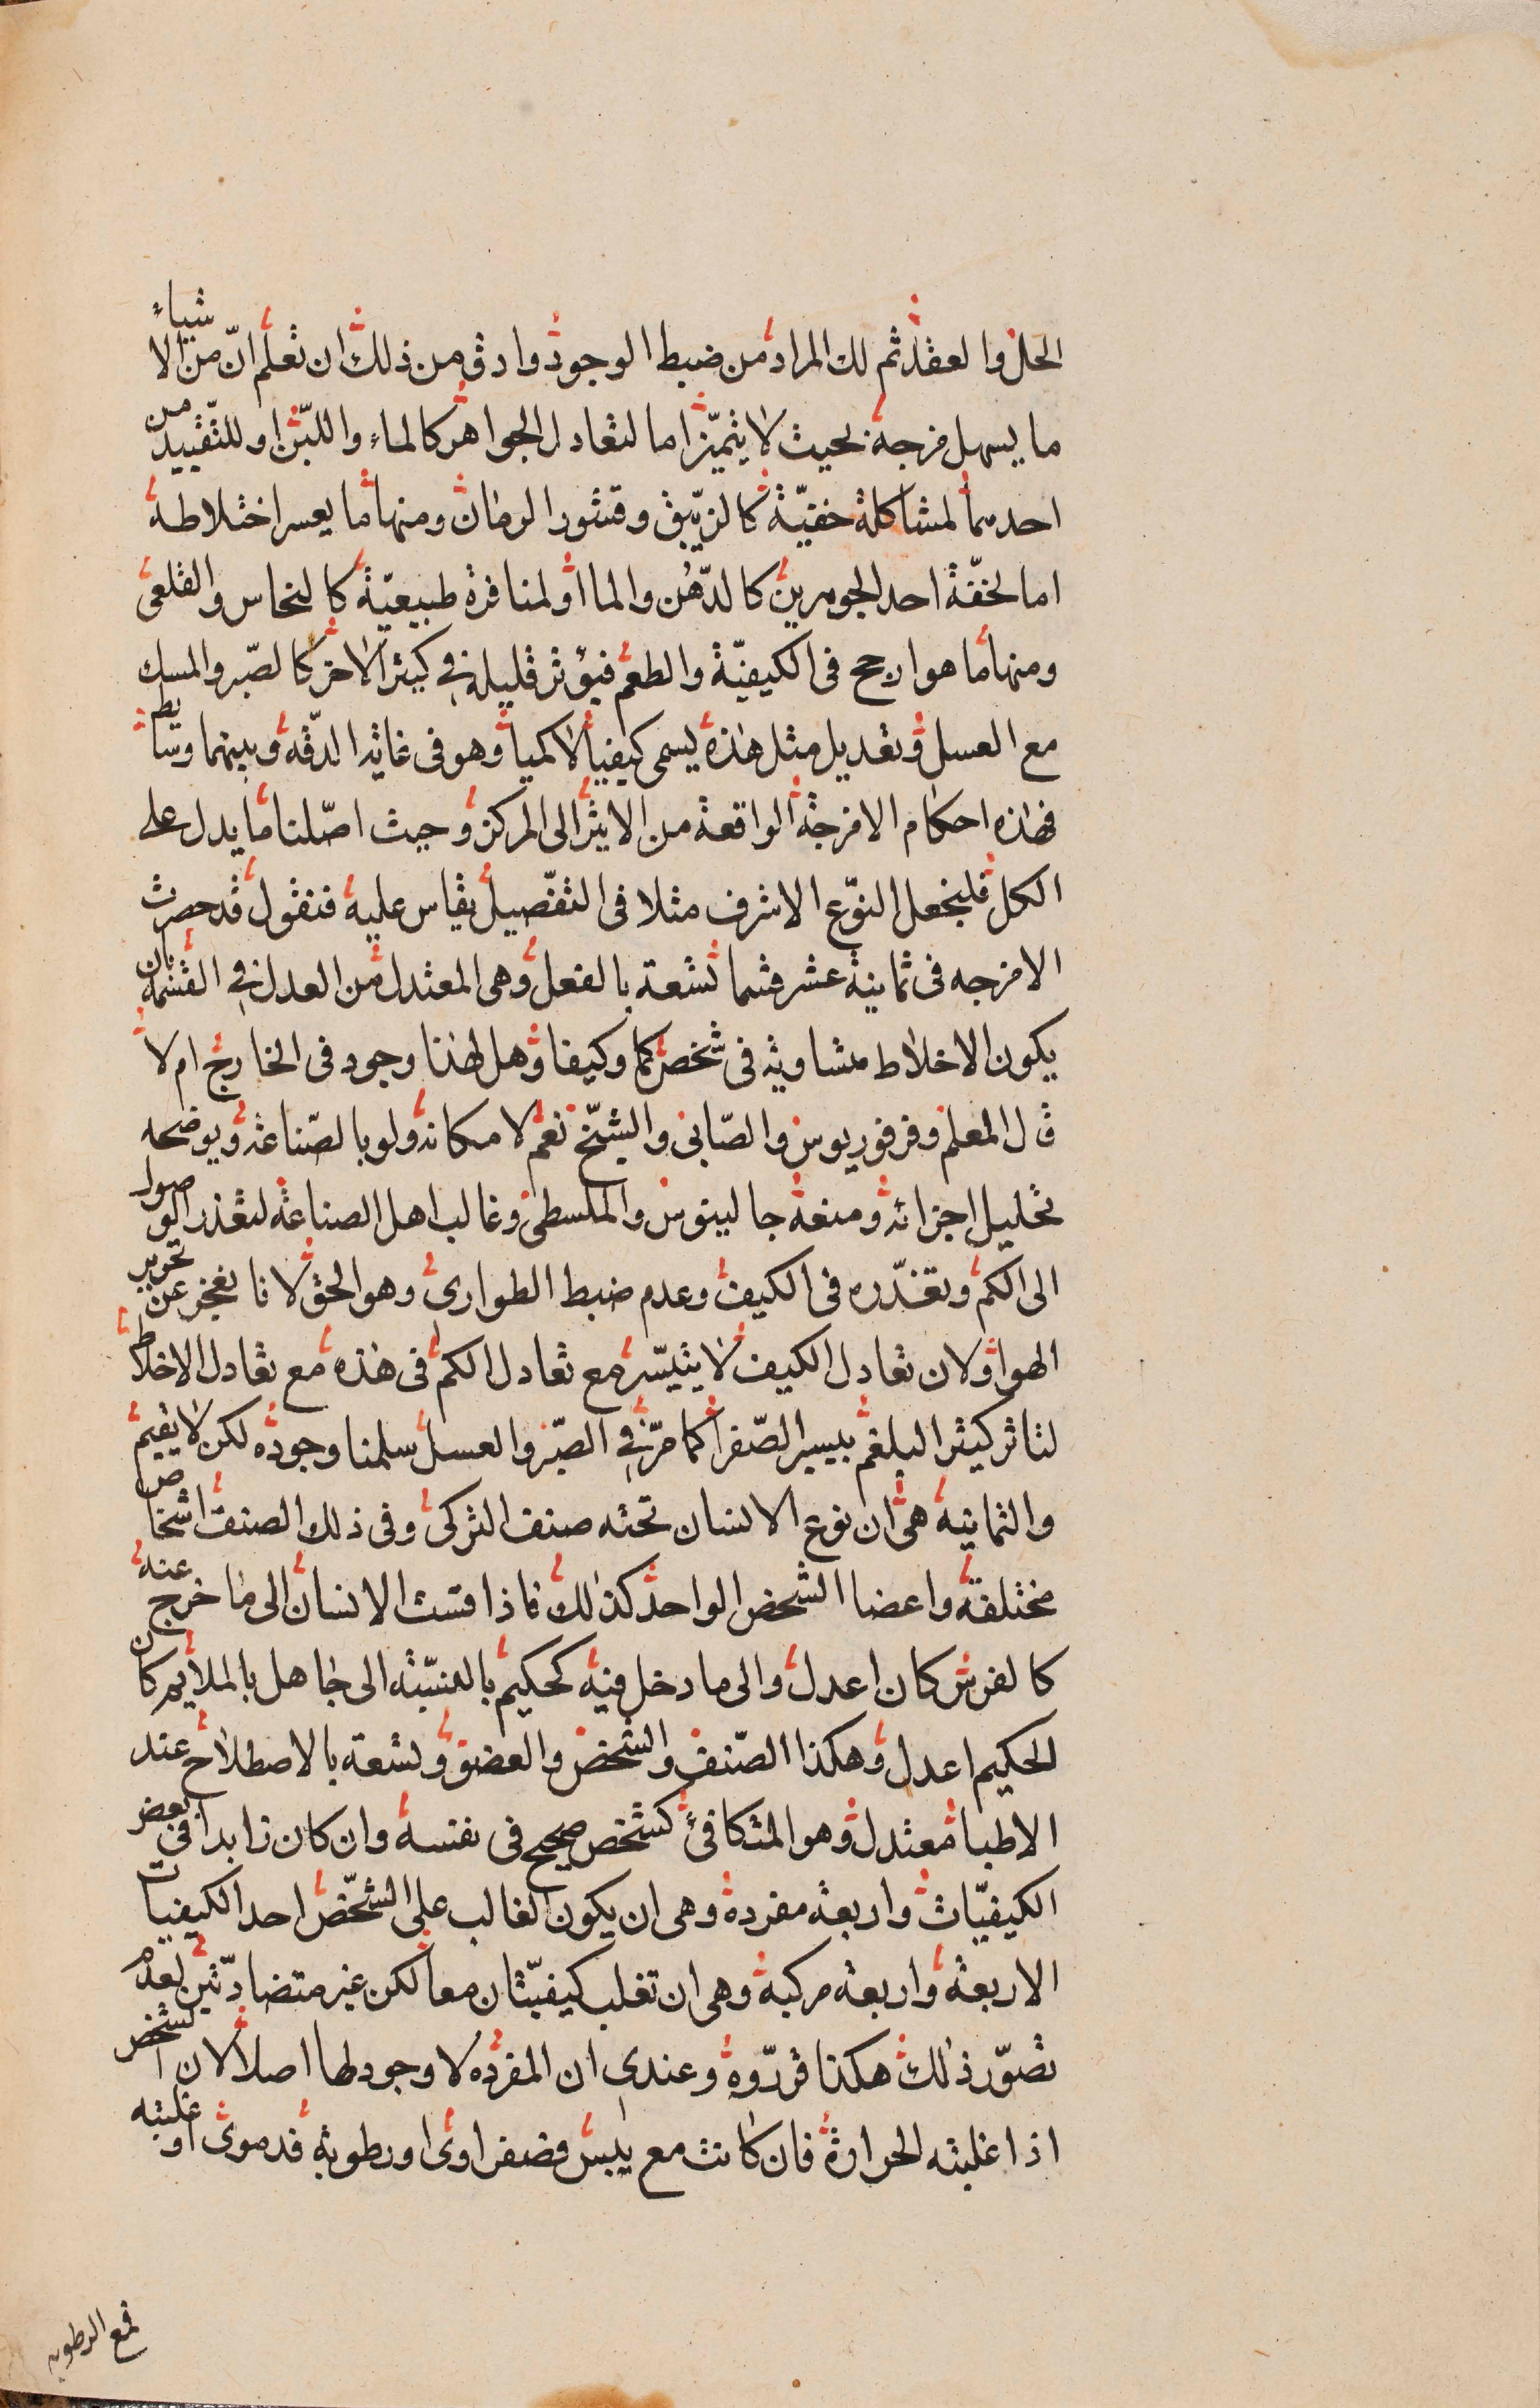 الحل والعقد ثم لك المراد من ضبط الوجود وادق من ذلك ان تعلم ان من الاشياء
ما يسهل مزجه بحيث لا يتميز اما لتعادل الجواهر كالماء واللبن او للتقييد من
احدهما لمشاكلة خفية كالزيبق وقشور الرمان ومنها ما يعسر اختلاطه
اما لخفة احد الجوهرين كالدهن والما او لمنافرة طبيعية كالنحاس والقلعى
ومنها ما هو ارجح فى الكيفية والطعم فيؤثر قليله فى كثير الاخر كالصبر والمسك
مع العسل وتعديل مثل هذه يسمى كيفيا لا كميا وهو فى غاية الدقه وبينهما وسايط
فهذه احكام الامزجة الواقعة من الاثير الى المركز وحيث اصلنا ما يدل على
الكل فلنجعل النوع الاشرف مثلا فى التفصيل يقاس عليه فنقول قد حصرت
الامزجه فى ثمانية عشر قسما تسعة بالفعل وهى المعتدل من العدل فى القسمة بان
يكون الاخلاط متساوية فى شخص كما وكيفا وهل لهذا وجود فى الخارج ام لا
قال المعلم وفرفوريوس والصابى والشيخ نعم لامكانه ولو بالصناعة ويوضحه
تحليل اجزائه ومنعه جالينوس والملطى وغالب اهل الصناعة لتعذر الوصول
الى الكم وتعذره فى الكيف وعدم ضبط الطوارى وهو الحق لانا نعجز عن تحرير
الهوا ولان تعادل الكيف لا يتيسر مع تعادل الكم فى هذه مع تعادل الاخلاط
لتاثر كثير البلغم بيسير الصفرا كما مر فى الصبر والعسل سلمنا وجوده لكن لا يقيم
والثمانية هى ان نوع الانسان تحته صنف التركى وفى ذلك الصنف اشخاص
مختلفة واعضا الشخص الواحد كذلك فاذا قست الانسان الى ما خرج عنه
كالفرس كان اعدل والى ما دخل فيه كحكيم بالنسبة الى جاهل بالملايم كان
الحكيم اعدل وهكذا الصنف والشخص والعضو وتسعة بالاصطلاح عند
الاطبا معتدل وهو المتكافئ كشخص صحيح فى نفسه وان كان زايدا فى بعض
الكيفيات واربعة مفردة وهى ان يكون الغالب على الشخص احد الكيفيات
الاربعة واربعة مركبة وهى ان تغلب كيفيتان معا لكن غير متضادتين لعدم
تصور ذلك هكذا قرروه وعندى ان المفرده لا وجود لها اصلا لان الشخص
اذا غلبته الحرارة فان كانت مع يبس فصفراوى او رطوبة فدموى او غلبته
فمع الرطوبه